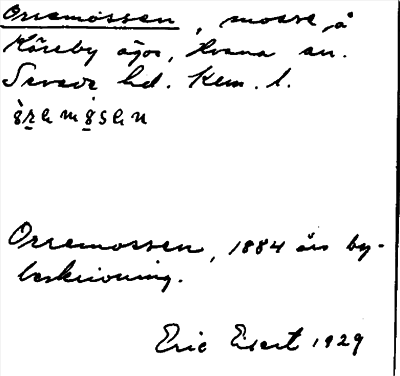 Orremossen, mosse å
Kåreby ägor, Hvena sn.
Sevede hd. Kem. l.
Orremossen, 1884 års by-
beskrivning.
Eric Elgert 1929